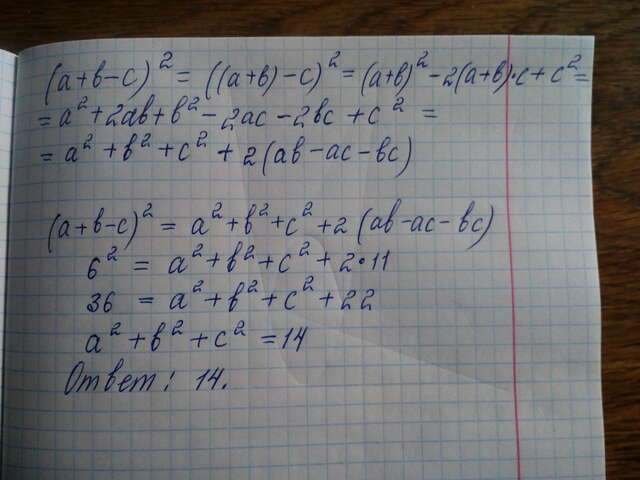 (a+b-c)² = ((a+b)-c)² = (a+b)² - 2(a+b)·c + c² =
= a² + 2ab + b² - 2ac - 2bc + c² =
= a² + b² + c² + 2(ab - ac - bc)
(a+b-c)² = a² + b² + c² + 2(ab - ac - bc)
6² = a² + b² + c² + 2·11
36 = a² + b² + c² + 22
a² + b² + c² = 14
Ответ: 14.